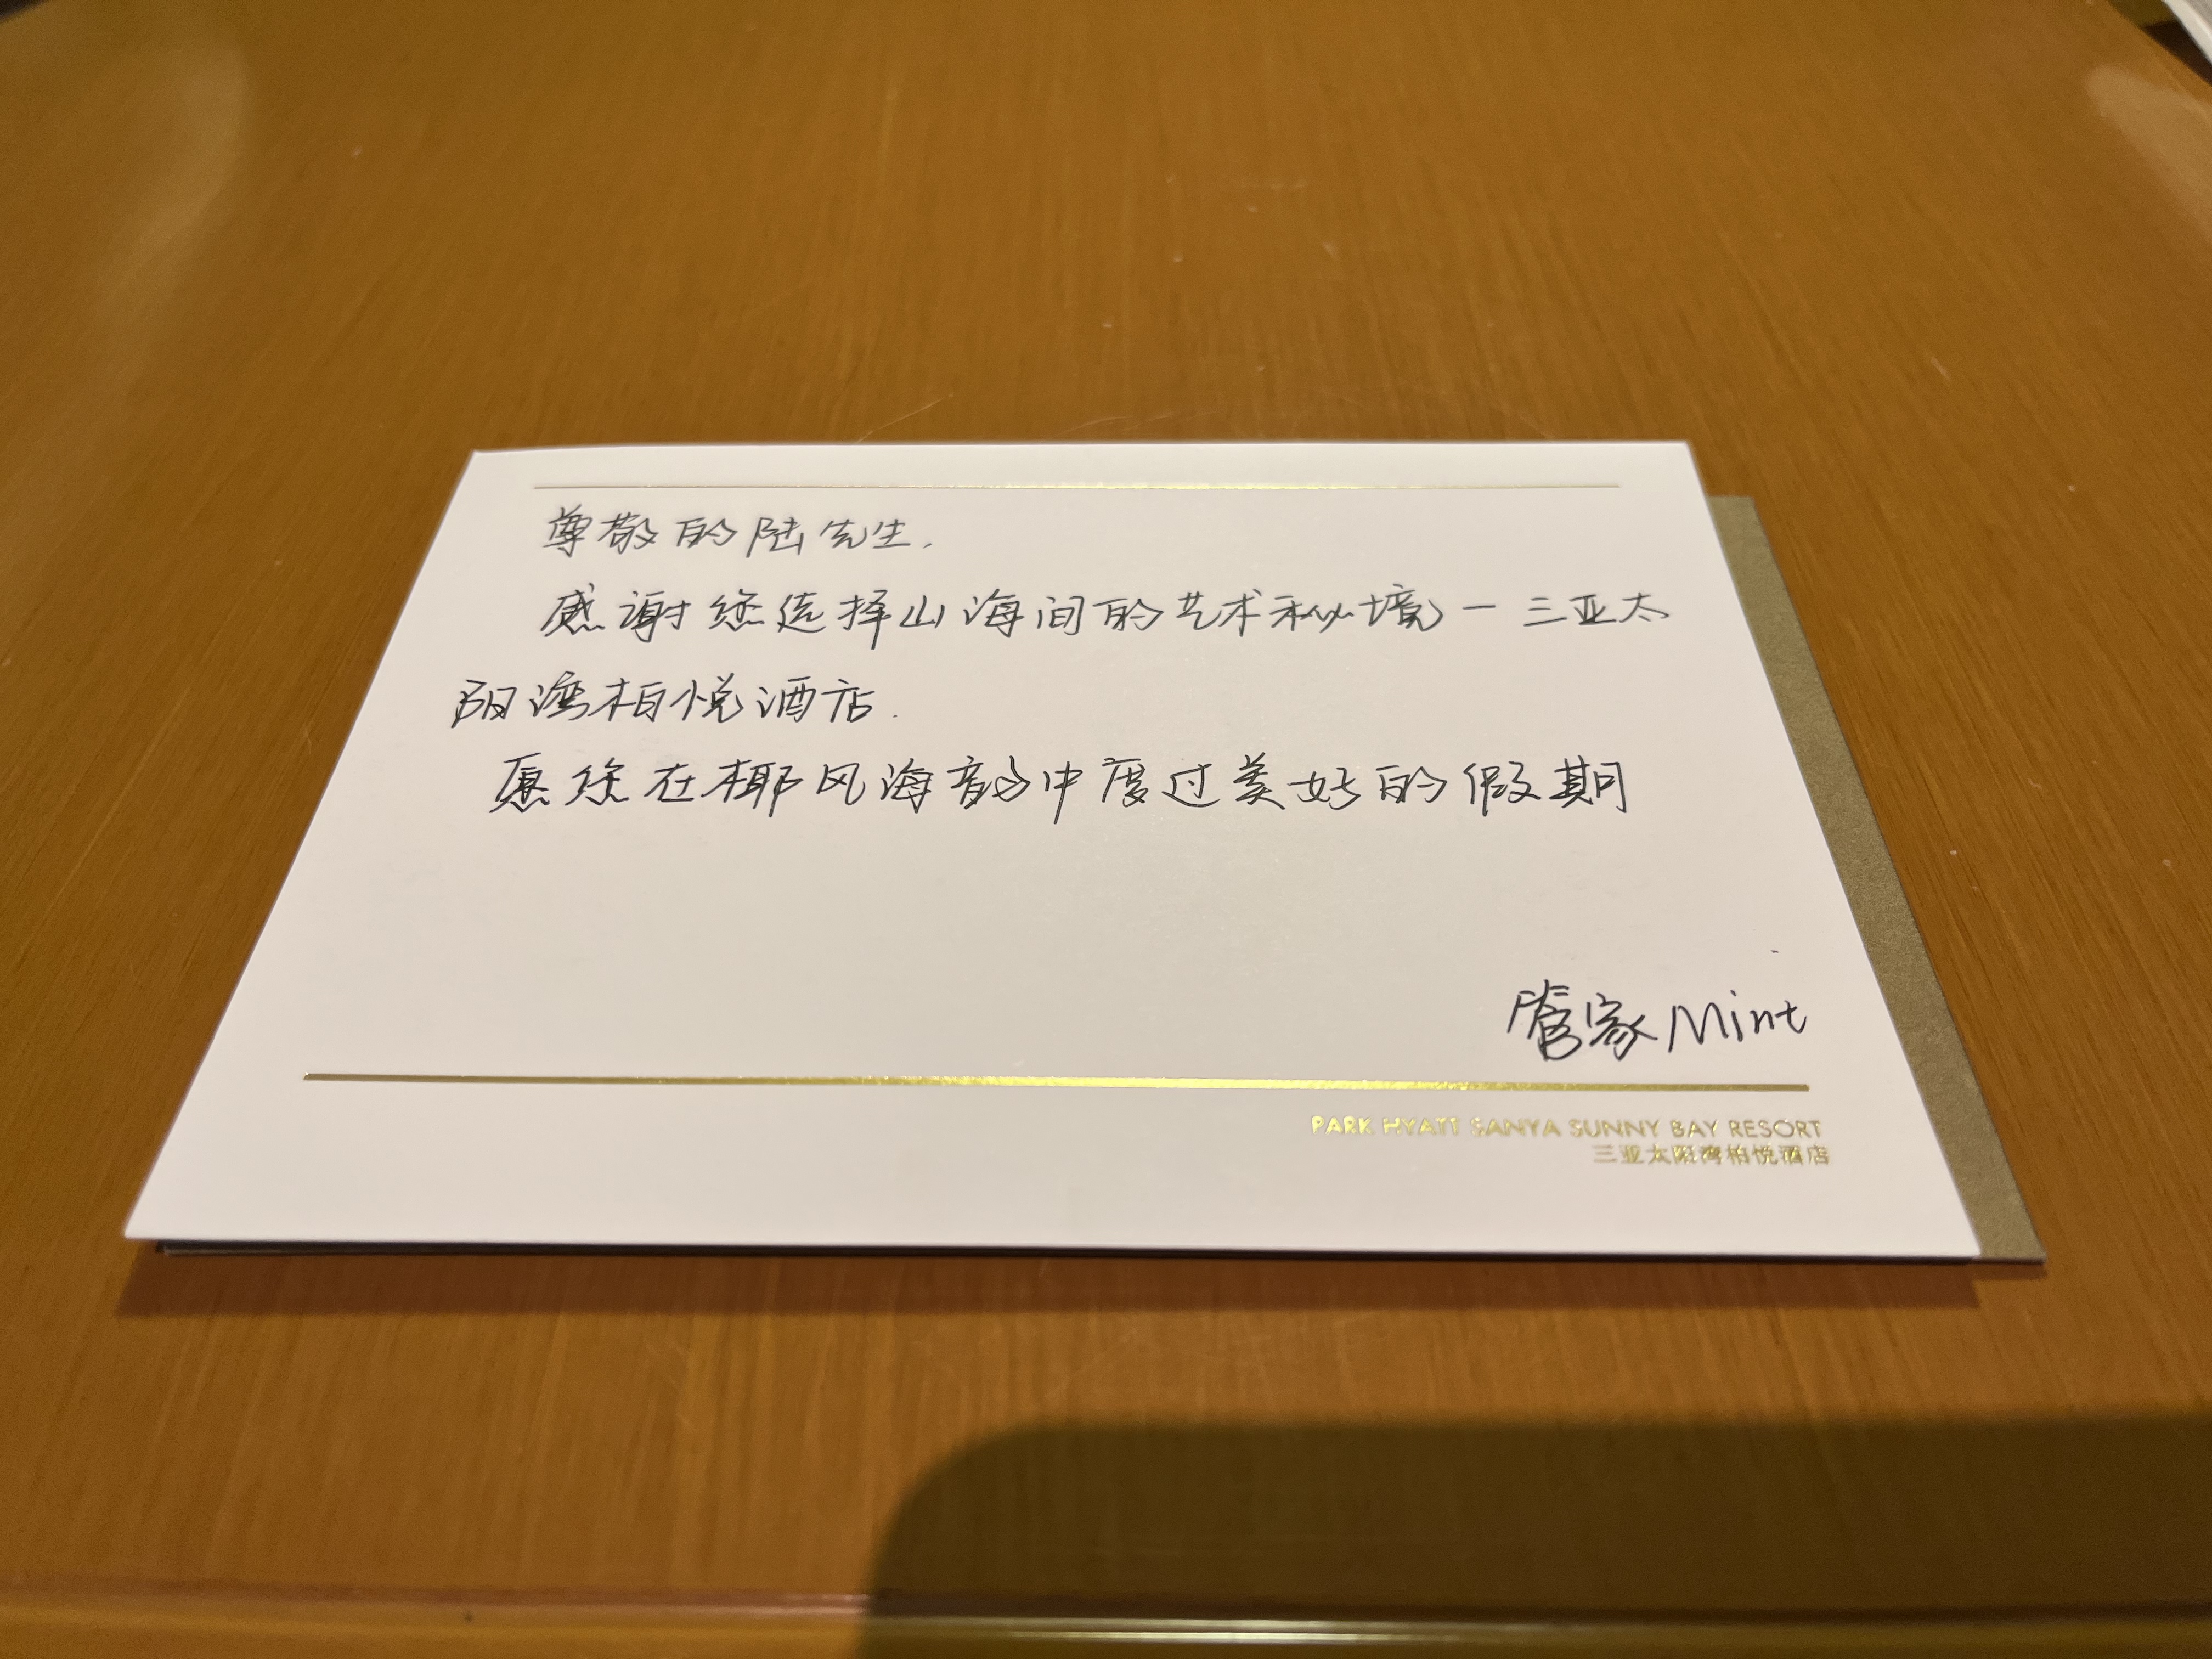 尊敬的陆先生.
感谢您选择山海间的艺术秘境一三亚太
阳湾柏悦酒店.
愿您在椰风海韵中度过美好的假期
管家Mint
PARK HYATT SANYA SUNNY BAY RESORT
三亚太阳湾柏悦酒店